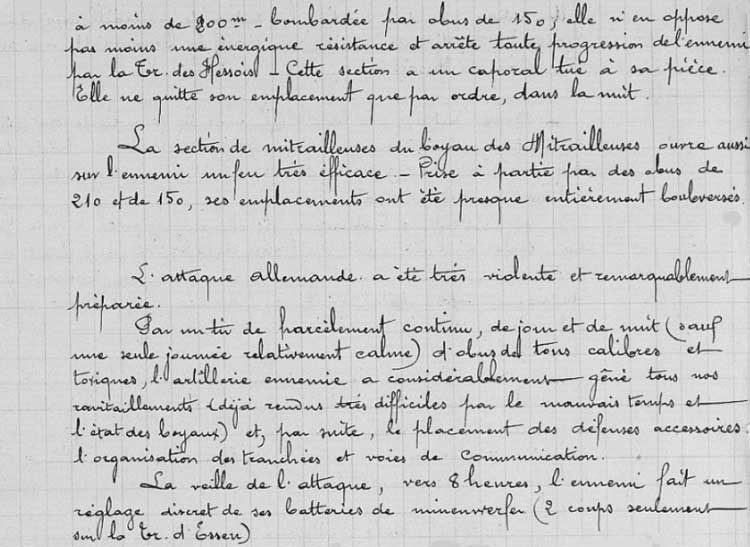 à moins de 200m - bombardée par obus de 150, elle n'en oppose
pas moins une énergique résistance et arrête toute progression de l'ennemi
par la Tr. des Hessois - Cette section a un caporal tué à sa pièce.
Elle ne quitte son emplacement que par ordre, dans la nuit.
La section de mitrailleuses du boyau des Mitrailleuses ouvre aussi
sur l'ennemi un feu très efficace - Prise à partie par des obus de
210 et de 150, ses emplacements ont été presque entièrement bouleversés.
L'attaque allemande a été très violente et remarquablement
préparée.
Par un tir de harcèlement continu, de jour et de nuit (sauf
une seule journée relativement calme) d'obus de tous calibres et
toxiques, l'artillerie ennemie a considérablement gêné tous nos
ravitaillements (déjà rendus très difficiles par le mauvais temps et
l'état des boyaux) et, par suite, le placement des défenses accessoires.
l'organisation des tranchées et voies de communication.
La veille de l'attaque, vers 8 heures, l'ennemi fait un
réglage discret de ses batteries de minenwerfer (2 coups seulement
sur la Tr. d'Essen)